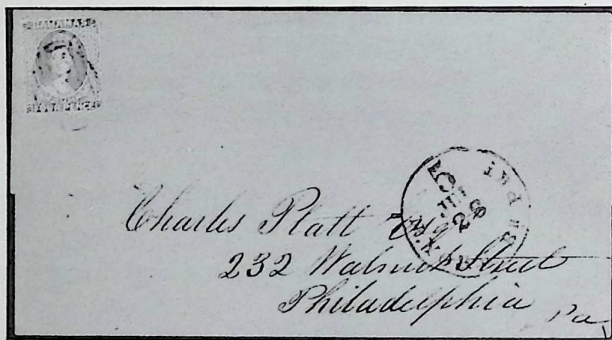 BAHAMAS
FOUR PENCE
Charles Platt Esq
232 Walnut Street
Philadelphia
Pa